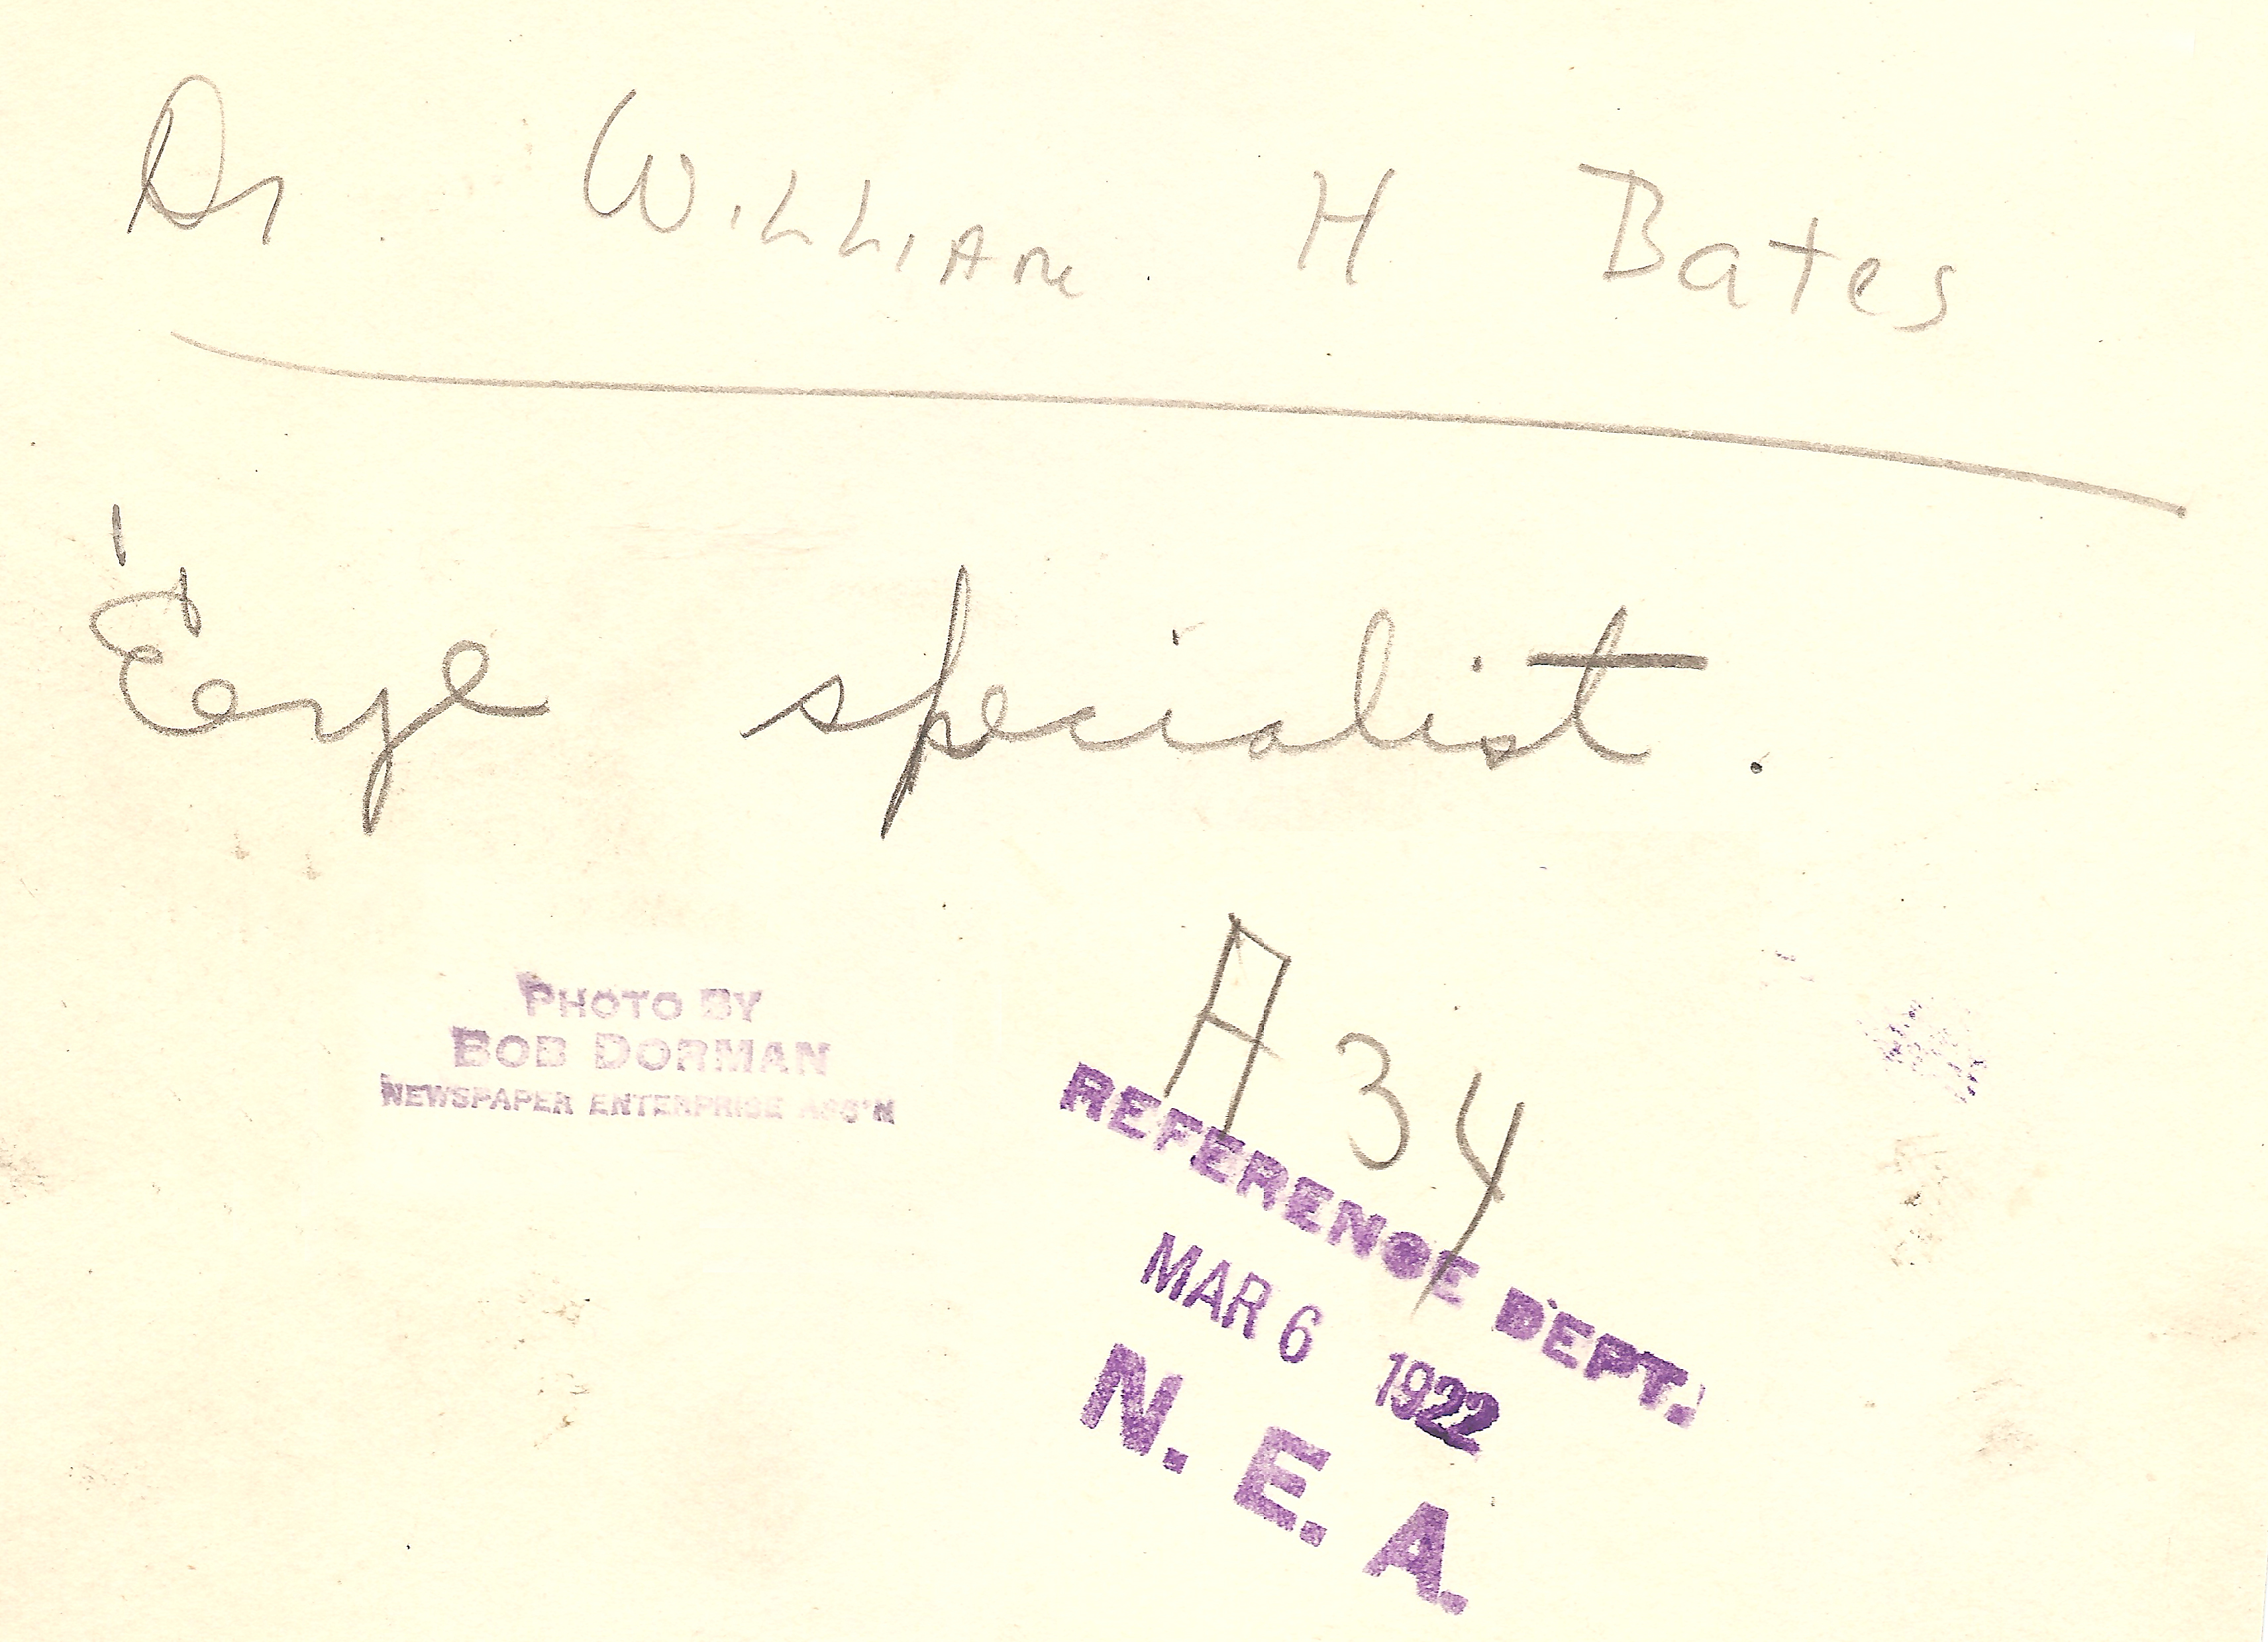 Dr. William H Bates
Eeye specialist.
PHOTO BY
BOB DORMAN
NEWSPAPER ENTERPRISE ASS'N
A 34
REFERENCE DEPT.
MAR 6 1922
N. E. A.